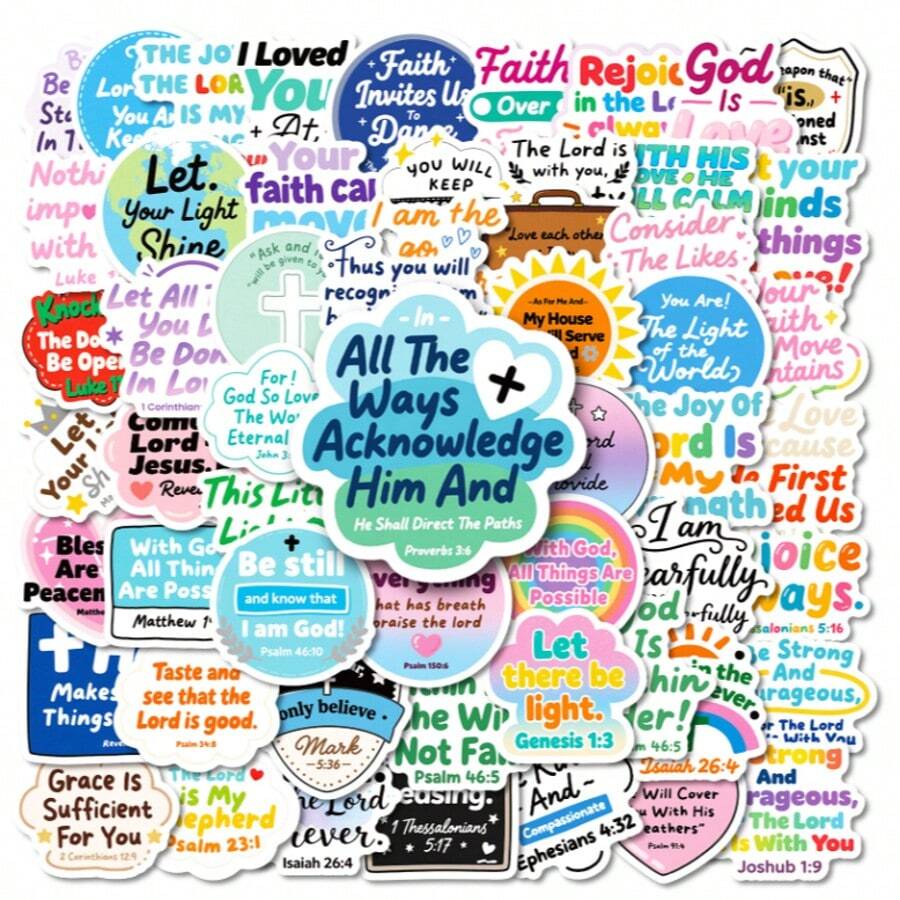 THE JO
THE LOR
IS MY
Lor
You Ar
Kee
Be
Sto
In T
I Loved
You
At,
Faith
Invites Us
To
Dance
Faith
Over
Rejoic
in the Lo
alway
God
Is
Love
eapon that
is,
oned
nst
Nothi
imp
with
Luke
Let.
Your Light
Shine
Your
faith can
move
YOU WILL
KEEP
I am the
The Lord is
with you,
"Love each other
ITH HIS
OVE HE
LL CALM
Consider
The Likes
t your
inds
things
Knock
The Do
Be Open
Luke 11
Let All T
You D
Be Don
In Lov
1 Corinthian
"Ask and
will be given to yo
Thus you will
recogni
-As For Me And-
My House
ill Serve
You Are!
The Light
of the
World,
Your
aith
Move
ntains
-In-
All The
Ways
Acknowledge
Him And
He Shall Direct The Paths
Proverbs 3:6
For!
God So Love
The Wor
Eternal
John 3:
Let
Your
Sh
Com
Lord
Jesus.
Reve
This Litt
Light O
ord
rovide
he Joy Of
ord Is
My
ngth
Love
cause
e First
ed Us
Bles
Are
Peacem
Matthe
With Go
All Thin
Are Poss
Matthew 1
Be still
and know that
I am God!
Psalm 46:10
everything
that has breath
praise the lord
Psalm 150:6
With God,
All Things Are
Possible
I am
earfully
rfully
joice
ways.
ssalonians 5:16
Makes
Things
Reve
Taste and
see that the
Lord is good.
Psalm 34:8
only believe
Mark
-5:36-
thin
he Wi
Not Fa
Psalm 46:5
Let
there be
light.
Genesis 1:3
od
Is
thin
er!
m 46:5
in the
ever.
Isaiah 26:4
Be Strong
And
urageous,
For The Lord
Is With You
Grace Is
Sufficient
For You
2 Corinthians 12:9
The Lord
is My
hepherd
Psalm 23:1
he Lord
rever.
Isaiah 26:4
easing.
1 Thessalonians
5:17
And-
Compassionate
Ephesians 4:32
Will Cover
u With His
eathers"
Psalm 91:4
Strong
And
rageous,
The Lord
Is With You
Joshub 1:9